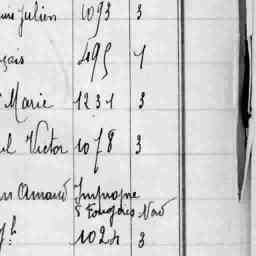 Julien 1093 3
çais 495 1
Marie 1231 3
Victor 1078 3
Armand Impropre
5 Fougères Nord
1024 3